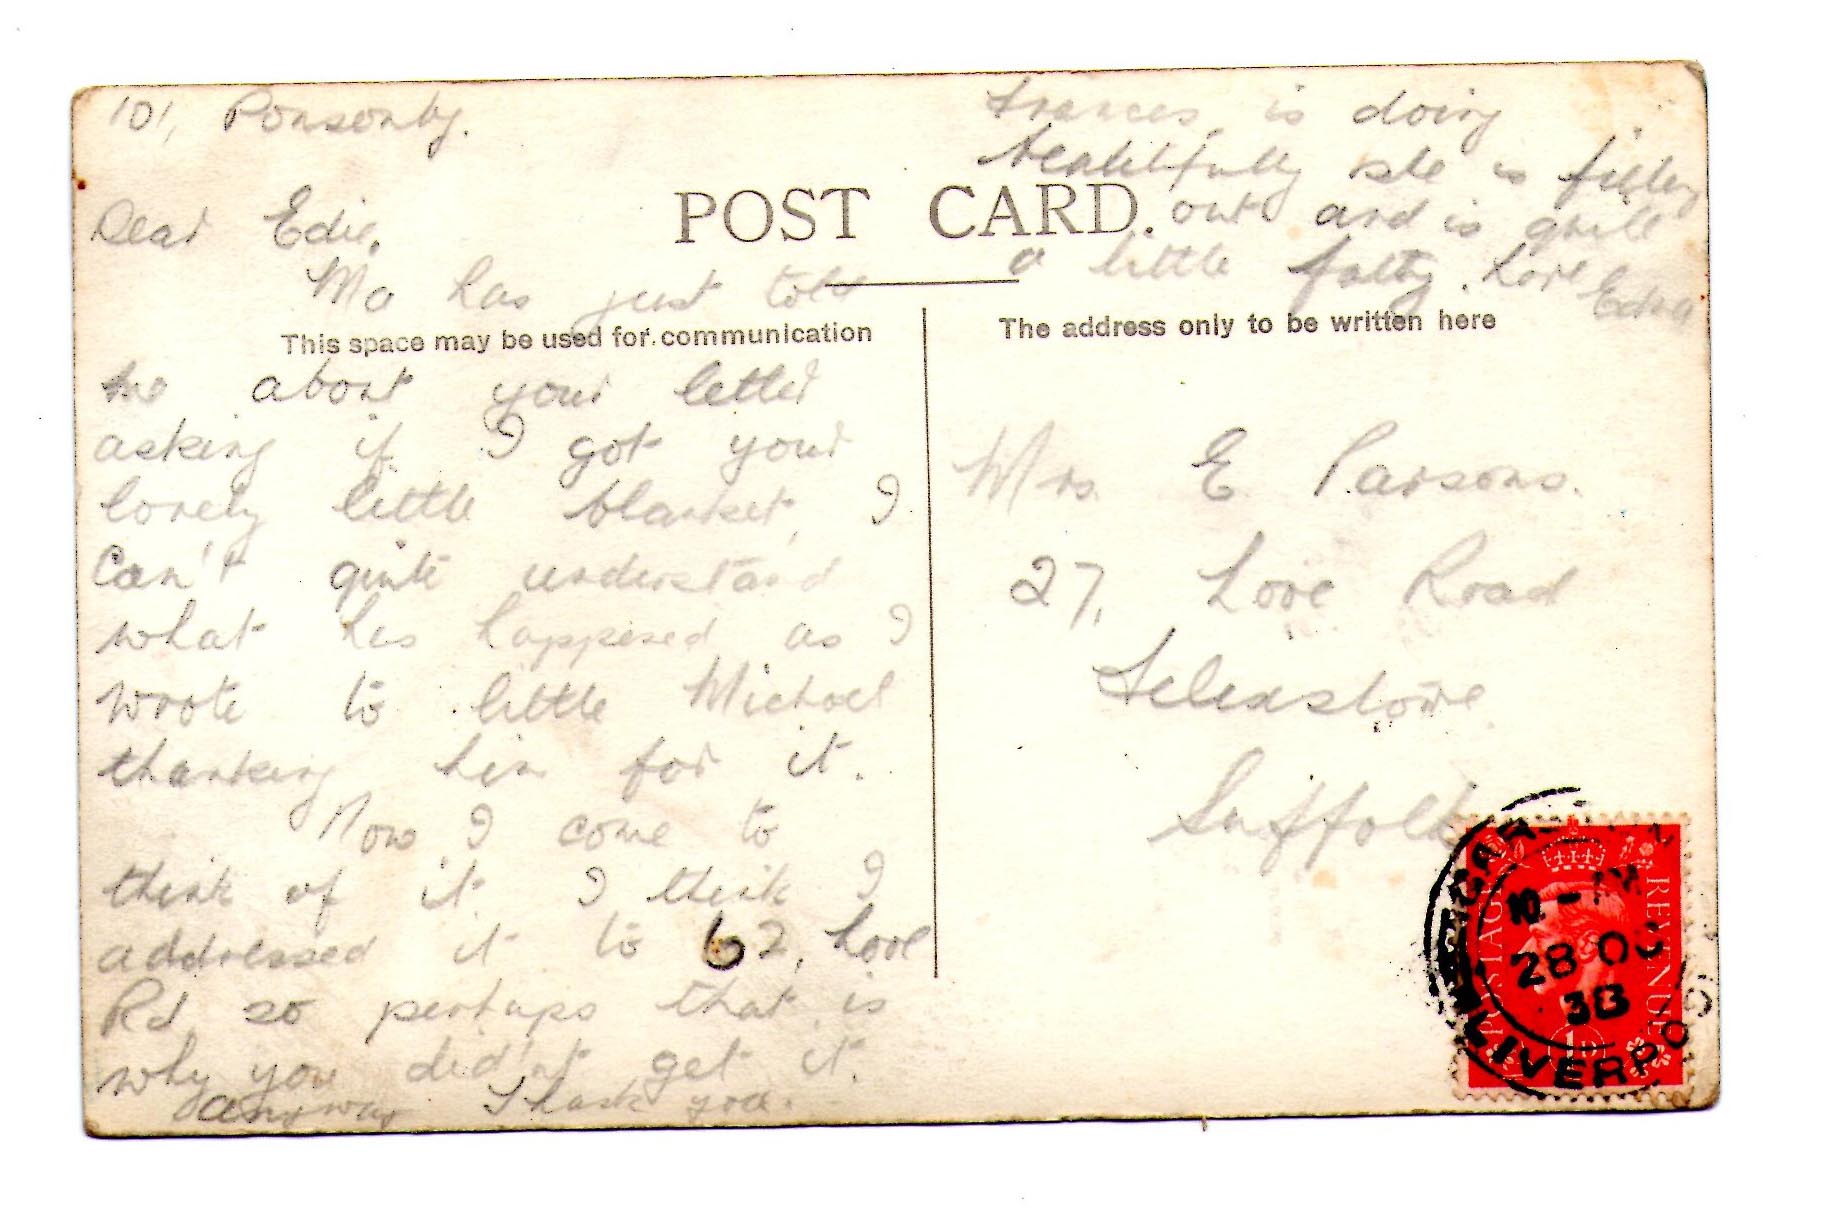 101, Ponsonby.
Dear Edie,
Ma has just told
me about your letter
asking if I got your
lovely little blanket, I
Can't quite understand
what has happened as I
wrote to little Michael
thanking him for it.
Now I come to
think of it I think I
addressed it to 62, Love
Rd, so perhaps that is
why you did'nt get it.
anyway Thank you.
Frances is doing
beautifully she is filling
out and is quite
a little fatty. Love Edna
POST CARD.
This space may be used for communication
The address only to be written here
Mrs. E Parsons.
27, Love Road
Felixstowe
Suffolk
POSTAGE
REVENUE
1D
28 OC
38
LIVERPO